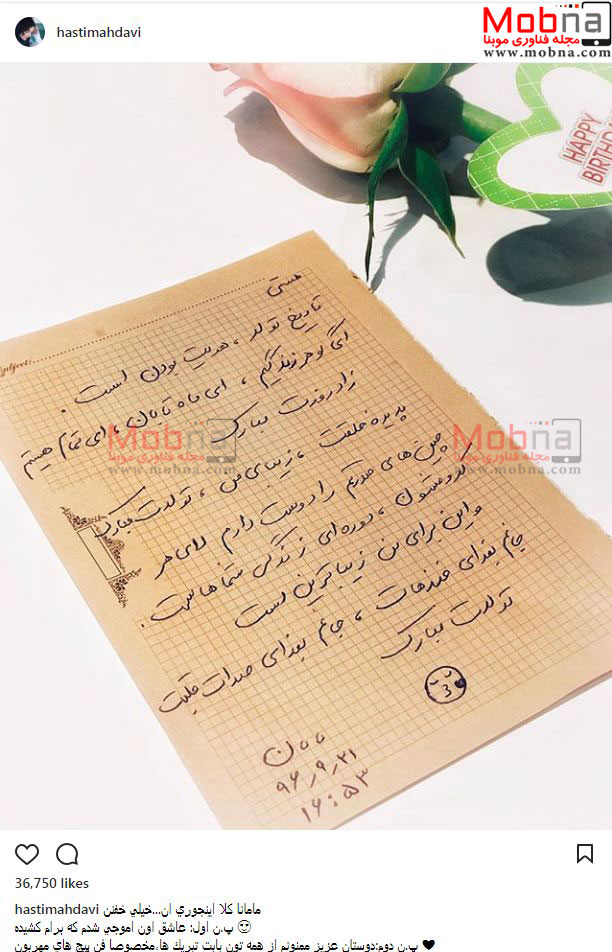 hastimahdavi
Mobna
مجله فناوری موبنا
www.mobna.com
HAPPY
BIRTHDA
Subject:
هستی
تاریخ تولد ، هویت بودن است .
ای گوهر فرزندیم ، ای ماه تابان ، ای تمام هستیم
زادروزت مبارک
پدیده خلقت ، زیبای من ، تولدت مبارک
چین های صورتم را دوست دارم لای هر
کدومشون ، دوره ای از زندگی شماهاست .
و این برای من زیباترین است
جانم بفدای خنده هات ، جانم بفدای صدات قلبت
تولدت مبارک
مامان
۹۶٫۹٫۲۱
۱۶:۵۳
Mobna
مجله فناوری موبنا
www.mobna.com
Mobna
مجله فناوری موبنا
www.mobna.com
36,750 likes
hastimahdavi مامانا كلا اينجوري ان...خيلي خفنن
پ.ن اول: عاشق اون اموجي شدم كه برام كشيده 🙂
پ.ن دوم:دوستان عزيز ممنونم از همه تون بابت تبريك ها،مخصوصا فن پيج هاي مهربون ♥